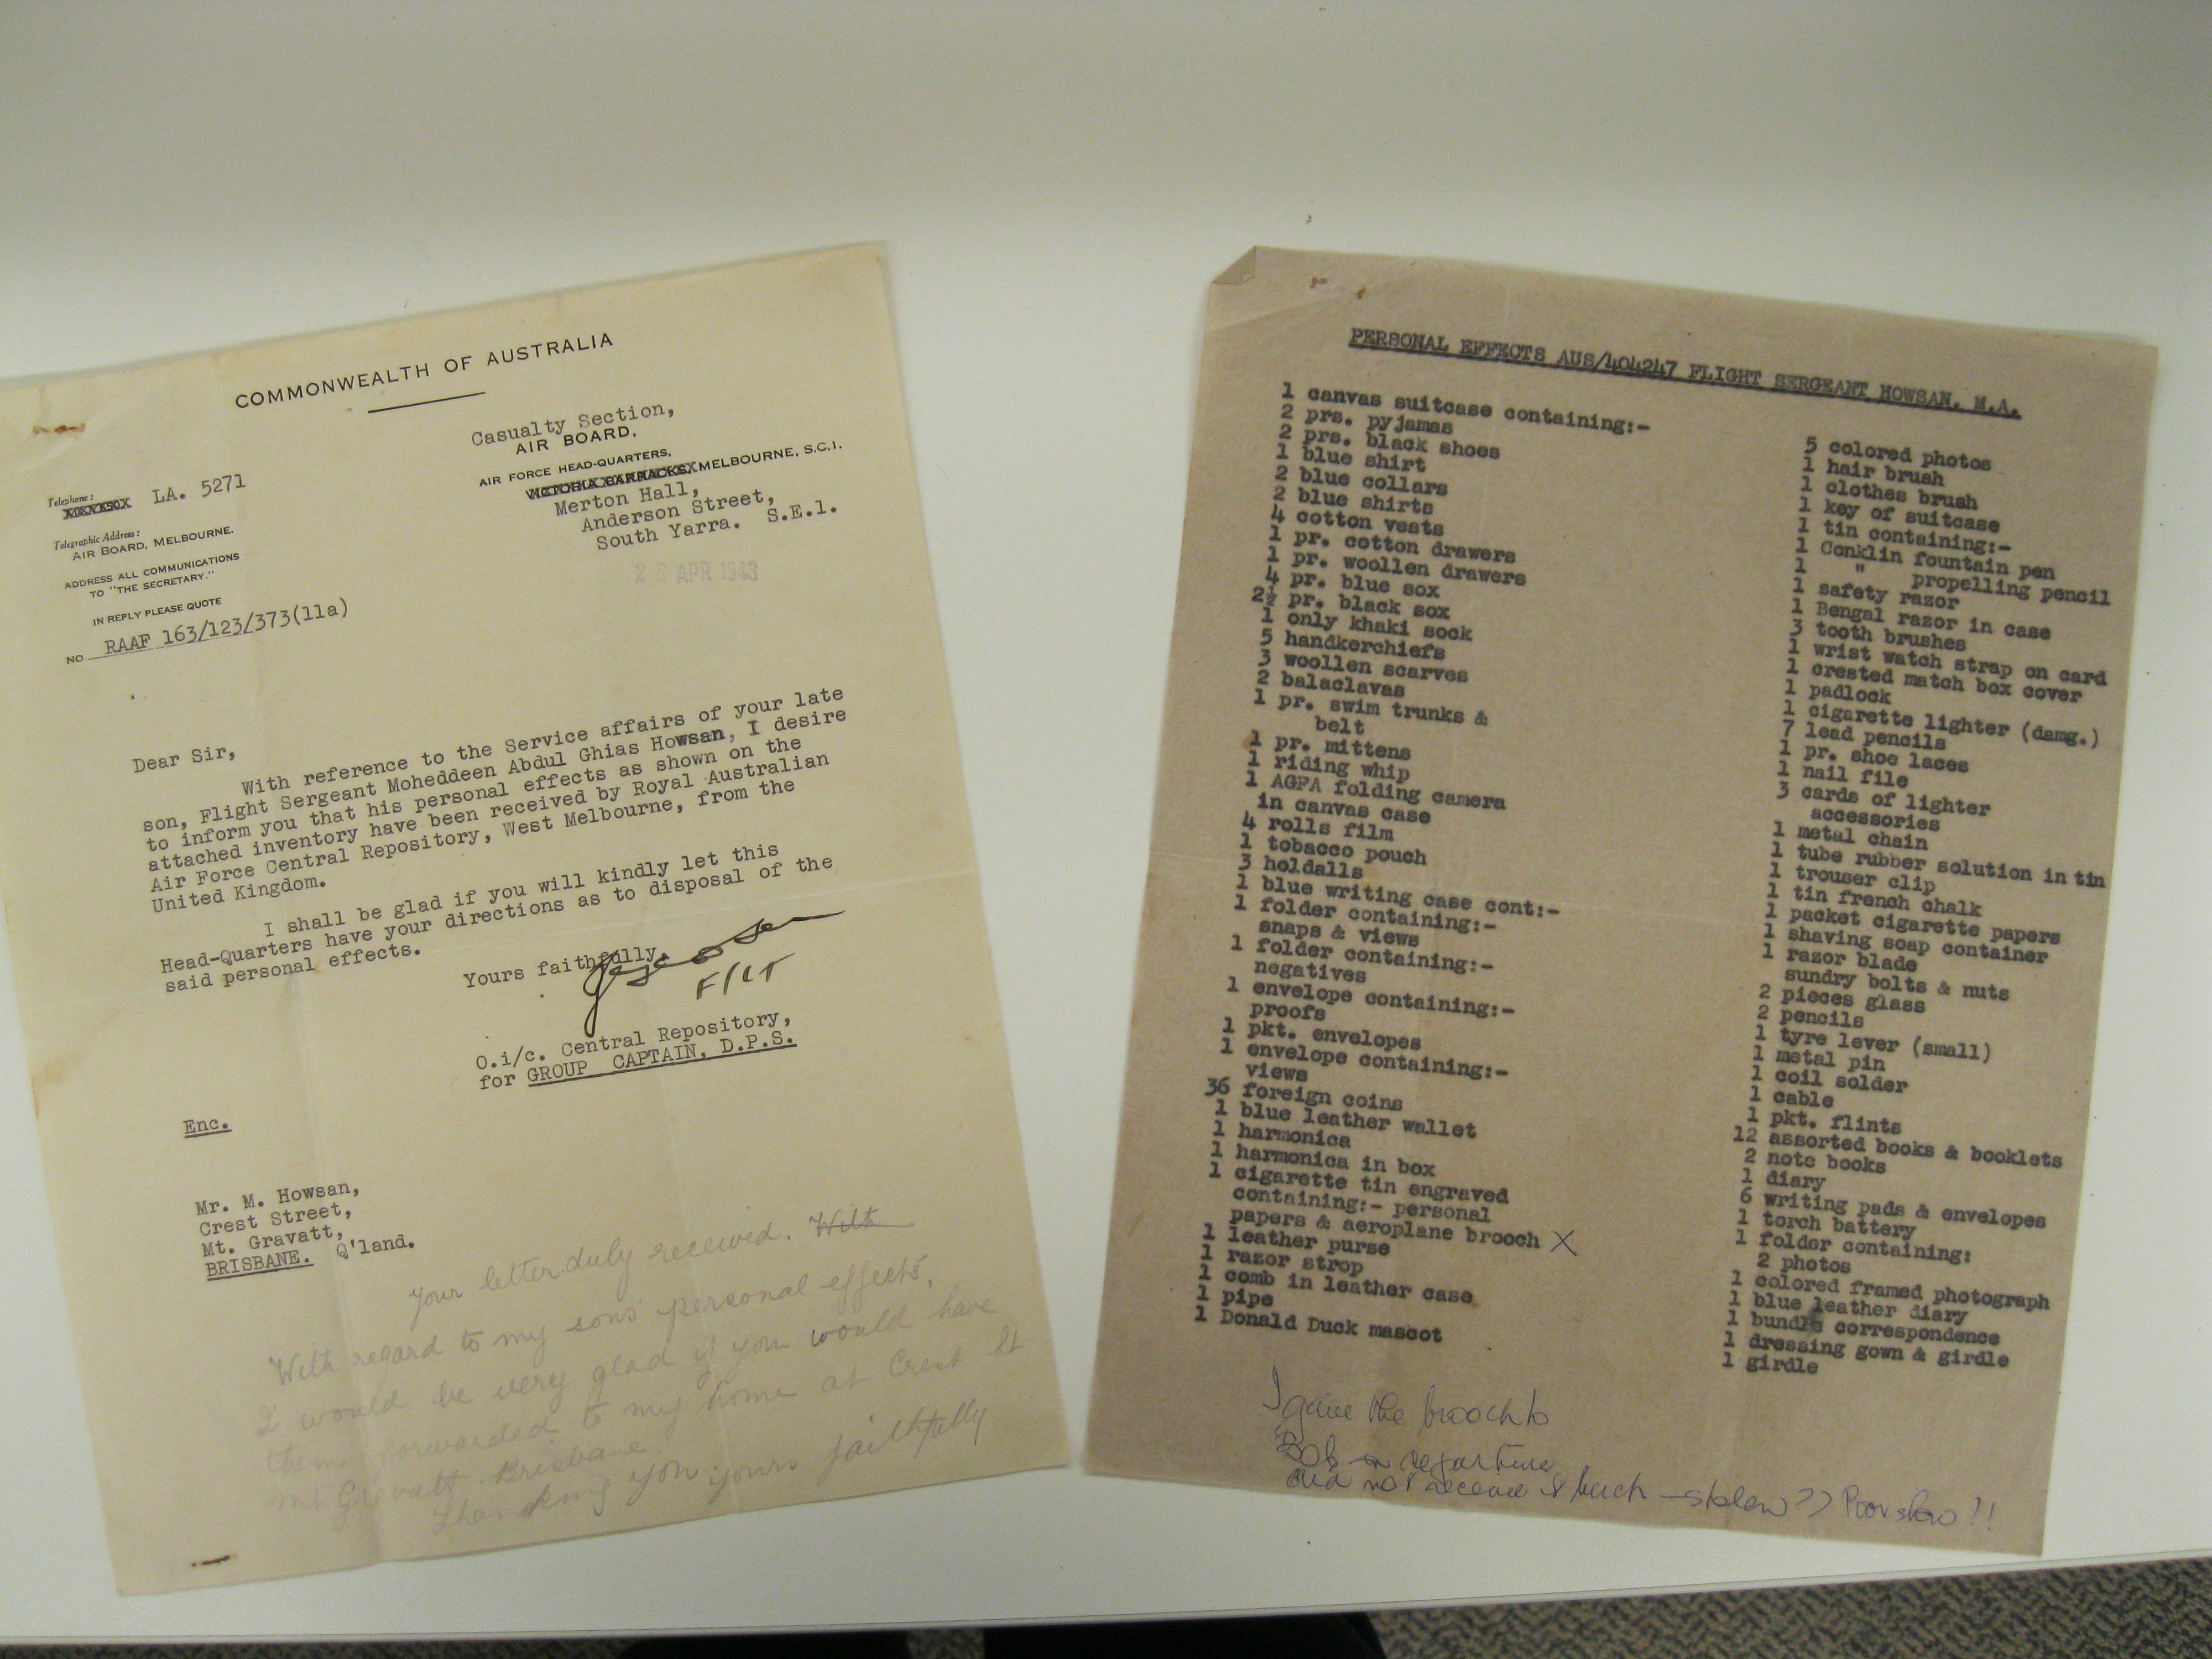 COMMONWEALTH OF AUSTRALIA
Casualty Section,
AIR BOARD,
AIR FORCE HEAD-QUARTERS,
VICTORIA BARRACKS, MELBOURNE, S.C.1.
Merton Hall,
Anderson Street,
South Yarra. S.E.1.
APR 1943
Telephone:
LA. 5271
Telegraphic Address:
AIR BOARD, MELBOURNE.
ADDRESS ALL COMMUNICATIONS
TO "THE SECRETARY."
IN REPLY PLEASE QUOTE
NO RAAF 163/123/373(11a)
Dear Sir,
With reference to the Service affairs of your late
son, Flight Sergeant Moheddeen Abdul Ghias Howsan, I desire
to inform you that his personal effects as shown on the
attached inventory have been received by Royal Australian
Air Force Central Repository, West Melbourne, from the
United Kingdom.
I shall be glad if you will kindly let this
Head-Quarters have your directions as to disposal of the
said personal effects.
Yours faithfully,
F/LT
O.i/c. Central Repository,
for GROUP CAPTAIN, D.P.S.
Enc.
Mr. M. Howsan,
Crest Street,
Mt. Gravatt,
BRISBANE. Q'land.
Your letter duly received. With
With regard to my sons personal effects,
I would be very glad if you would have
them forwarded to my home at Crest St
Mt Gravatt Brisbane.
Thanking you yours faithfully
PERSONAL EFFECTS AUS/404247 FLIGHT SERGEANT HOWSAN, M.A.
1 canvas suitcase containing:-
2 prs. pyjamas
2 prs. black shoes
1 blue shirt
2 blue collars
2 blue shirts
4 cotton vests
1 pr. cotton drawers
1 pr. woollen drawers
4 pr. blue sox
2½ pr. black sox
1 only khaki sock
5 handkerchiefs
3 woollen scarves
2 balaclavas
1 pr. swim trunks &
belt
1 pr. mittens
1 riding whip
1 AGFA folding camera
in canvas case
4 rolls film
1 tobacco pouch
3 holdalls
1 blue writing case cont:-
1 folder containing:-
snaps & views
1 folder containing:-
negatives
1 envelope containing:-
proofs
1 pkt. envelopes
1 envelope containing:-
views
36 foreign coins
1 blue leather wallet
1 harmonica
1 harmonica in box
1 cigarette tin engraved
containing:- personal
papers & aeroplane brooch X
1 leather purse
1 razor strop
1 comb in leather case
1 pipe
1 Donald Duck mascot
5 colored photos
1 hair brush
1 clothes brush
1 key of suitcase
1 tin containing:-
1 Conklin fountain pen
1 " propelling pencil
1 safety razor
1 Bengal razor in case
3 tooth brushes
1 wrist watch strap on card
1 crested match box cover
1 padlock
1 cigarette lighter (damg.)
7 lead pencils
1 pr. shoe laces
1 nail file
3 cards of lighter
accessories
1 metal chain
1 tube rubber solution in tin
1 trouser clip
1 tin french chalk
1 packet cigarette papers
1 shaving soap container
1 razor blade
sundry bolts & nuts
2 pieces glass
2 pencils
1 tyre lever (small)
1 metal pin
1 coil solder
1 cable
1 pkt. flints
12 assorted books & booklets
2 note books
1 diary
6 writing pads & envelopes
1 torch battery
1 folder containing:
2 photos
1 colored framed photograph
1 blue leather diary
1 bundle correspondence
1 dressing gown & girdle
1 girdle
I gave the brooch to
Bob on departure
did not receive it back - stolen ?? Poor show !!